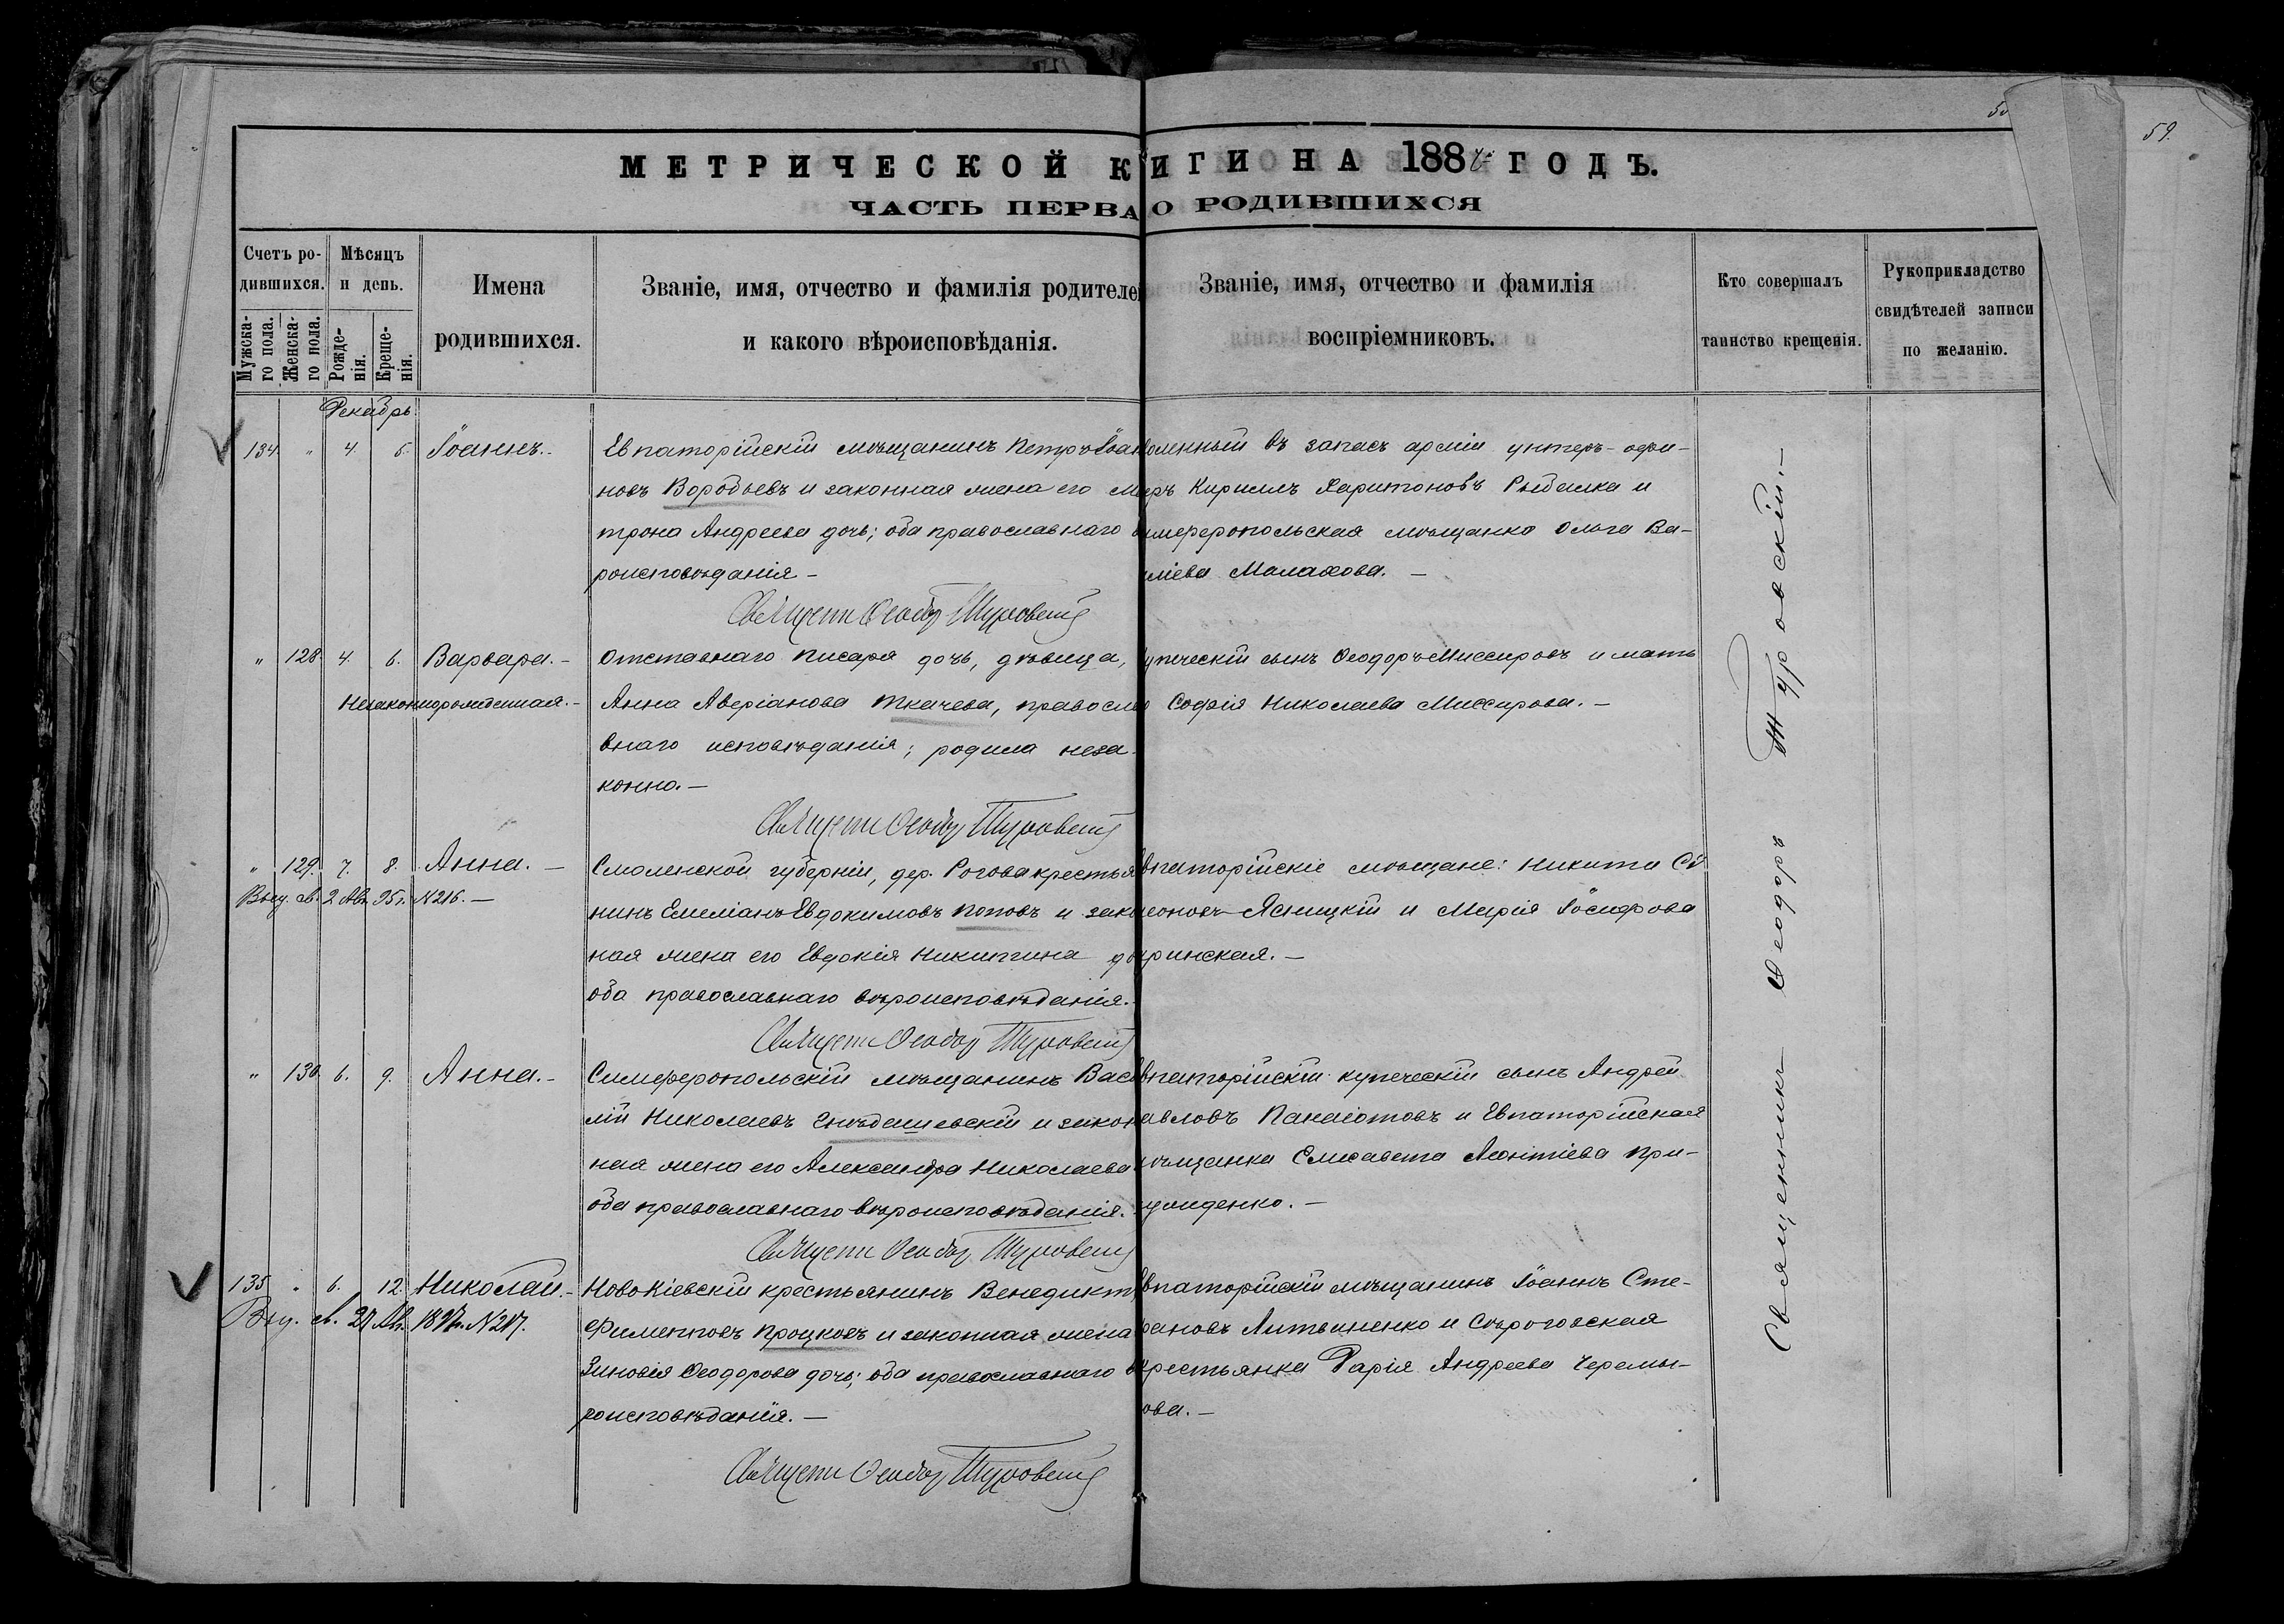 59.
МЕТРИЧЕСКОЙ К
ИГИ НА 188 ГОДЪ.
ЧАСТЬ ПЕРВА
О РОДИВШИХСЯ
Счетъ ро-
дившихся.
Мужска-
го пола.
Женска-
го пола.
Мѣсяцъ
и день.
Рожде-
нія.
Креще-
нія.
Имена
родившихся.
Званіе, имя, отчество и фамилія родителе
и какого вѣроисповѣданія.
Званіе, имя, отчество и фамилія
воспріемниковъ.
Кто совершалъ
таинство крещенія.
Рукоприкладство
свидѣтелей записи
по желанію.
Декабрь
134. " 4. 6. Іоаннъ.-
Евпаторійскій мѣщанинъ Петръ Іоан
новъ Воробьевъ и законная жена его Ма
трона Андреева дочь; оба православнаго в
роисповѣданія -
Священ Ѳеодор Туровскій
оленный въ запасъ арміи унтеръ-офи-
еръ Кириллъ Харитоновъ Рыбалка и
имферопольская мѣщанка Ольга Ва-
иліева Малахова. -
" 128. 4. 6. Варвара.-
Незаконнорожденная.-
Отставнаго писаря дочь, дѣвица,
Анна Аверіанова Ткачева, правосла
внаго исповѣданія; родила неза-
конно.-
Священ Ѳеодор Туровскій
упеческій сынъ Ѳеодоръ Миссировъ и мать
Софія Николаева Миссирова. -
" 129. 7. 8. Анна. -
Выд. св. 2 Авг. 95 г. №216. -
Смоленской губерніи, дер. Рогова крестья
нинъ Емеліанъ Евдокимовъ Поповъ и зако
ная жена его Евдокія Никитина до
оба православнаго вѣроисповѣданія.
Священ Ѳеодор Туровскій
впаторійскіе мѣщане: Никита Си
еоновъ Ясницкій и Марія Іосифова
ринская. -
" 130. 6. 9. Анна.-
Симферопольскій мѣщанинъ Васи
лій Николаевъ Гнѣдашевскій и закон
ная жена его Александра Николаева
оба православнаго вѣроисповѣданія.
Священ Ѳеодор Туровскій
впаторійскій купеческій сынъ Андрей
авловъ Панаіотовъ и Евпаторійская
мѣщанка Елисавета Леонтіева При-
-
135. " 6. 12. Николай.-
Выд. св. 27 Ав. 1897. №217.
Новокіевскій крестьянинъ Венедиктъ
Филипповъ Процковъ и законная жена
Зиновія Ѳеодорова дочь; оба православнаго в
роисповѣданія. -
Священ Ѳеодор Туровскій
впаторійскій мѣщанинъ Іоаннъ Сте-
фановъ Литвиненко и Сѣрогозская
рестьянка Дарія Андреева Черемы-
ова. -
Священникъ Ѳеодоръ Туровскій.-